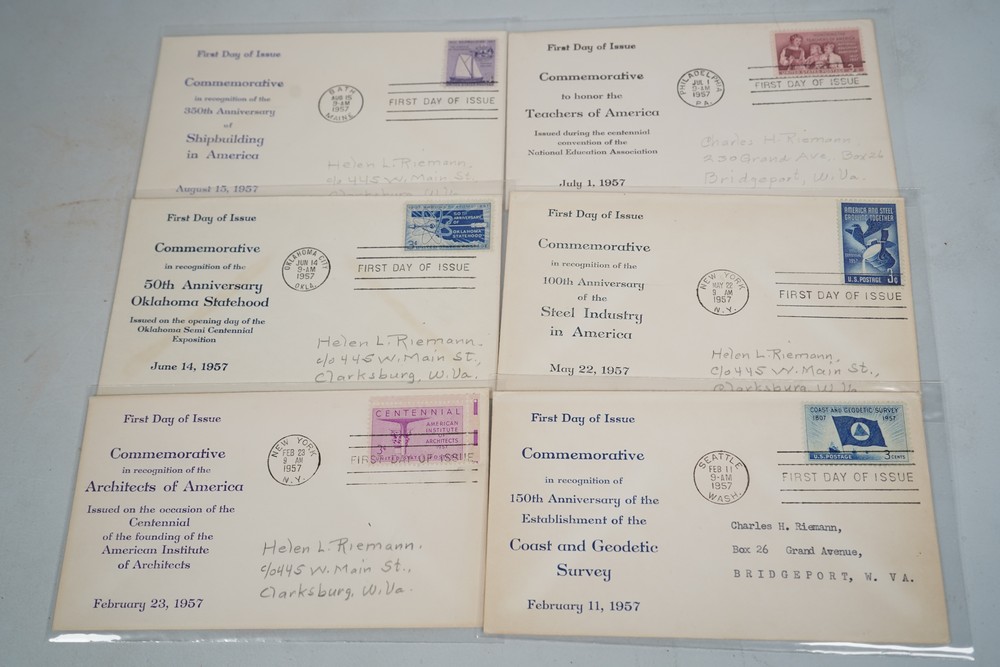 First Day of Issue
Commemorative
in recognition of the
350th Anniversary
of
Shipbuilding
in America
August 15, 1957
BATH
AUG 15
9-AM
1957
MAINE
FIRST DAY OF ISSUE
Helen L. Riemann,
c/o 445 W. Main St.
First Day of Issue
Commemorative
to honor the
Teachers of America
Issued during the centennial
convention of the
National Education Association
July 1, 1957
PHILADELPHIA
JUL 1
9-AM
1957
PA.
FIRST DAY OF ISSUE
Charles H. Riemann
230 Grand Ave, Box 26
Bridgeport, W. Va.
First Day of Issue
Commemorative
in recognition of the
50th Anniversary
Oklahoma Statehood
Issued on the opening day of the
Oklahoma Semi Centennial
Exposition
June 14, 1957
OKLAHOMA CITY
JUN 14
9-AM
1957
OKLA.
3¢
OKLAHOMA
STATEHOOD
FIRST DAY OF ISSUE
Helen L. Riemann.
c/o 445 W. Main St.,
Clarksburg, W. Va.
First Day of Issue
Commemorative
in recognition of the
100th Anniversary
of the
Steel Industry
in America
May 22, 1957
NEW YORK
MAY 22
9 AM
1957
N.Y.
AMERICA AND STEEL
GROWING TOGETHER
U.S. POSTAGE 3¢
FIRST DAY OF ISSUE
Helen L. Riemann,
c/o 445 W. Main St.,
Clarksburg, W. Va.
First Day of Issue
Commemorative
in recognition of the
Architects of America
Issued on the occasion of the
Centennial
of the founding of the
American Institute
of Architects
February 23, 1957
NEW YORK
FEB 23
9 AM
1957
N.Y.
CENTENNIAL
AMERICAN
INSTITUTE
OF
ARCHITECTS
3¢
FIRST DAY OF ISSUE
Helen L. Riemann.
c/o 445 W. Main St.,
Clarksburg, W. Va.
First Day of Issue
Commemorative
in recognition of
150th Anniversary of the
Establishment of the
Coast and Geodetic
Survey
February 11, 1957
SEATTLE
FEB 11
9-AM
1957
WASH.
COAST AND GEODETIC SURVEY
1807 1957
U.S. POSTAGE 3 CENTS
FIRST DAY OF ISSUE
Charles H. Riemann,
Box 26 Grand Avenue,
BRIDGEPORT, W. VA.